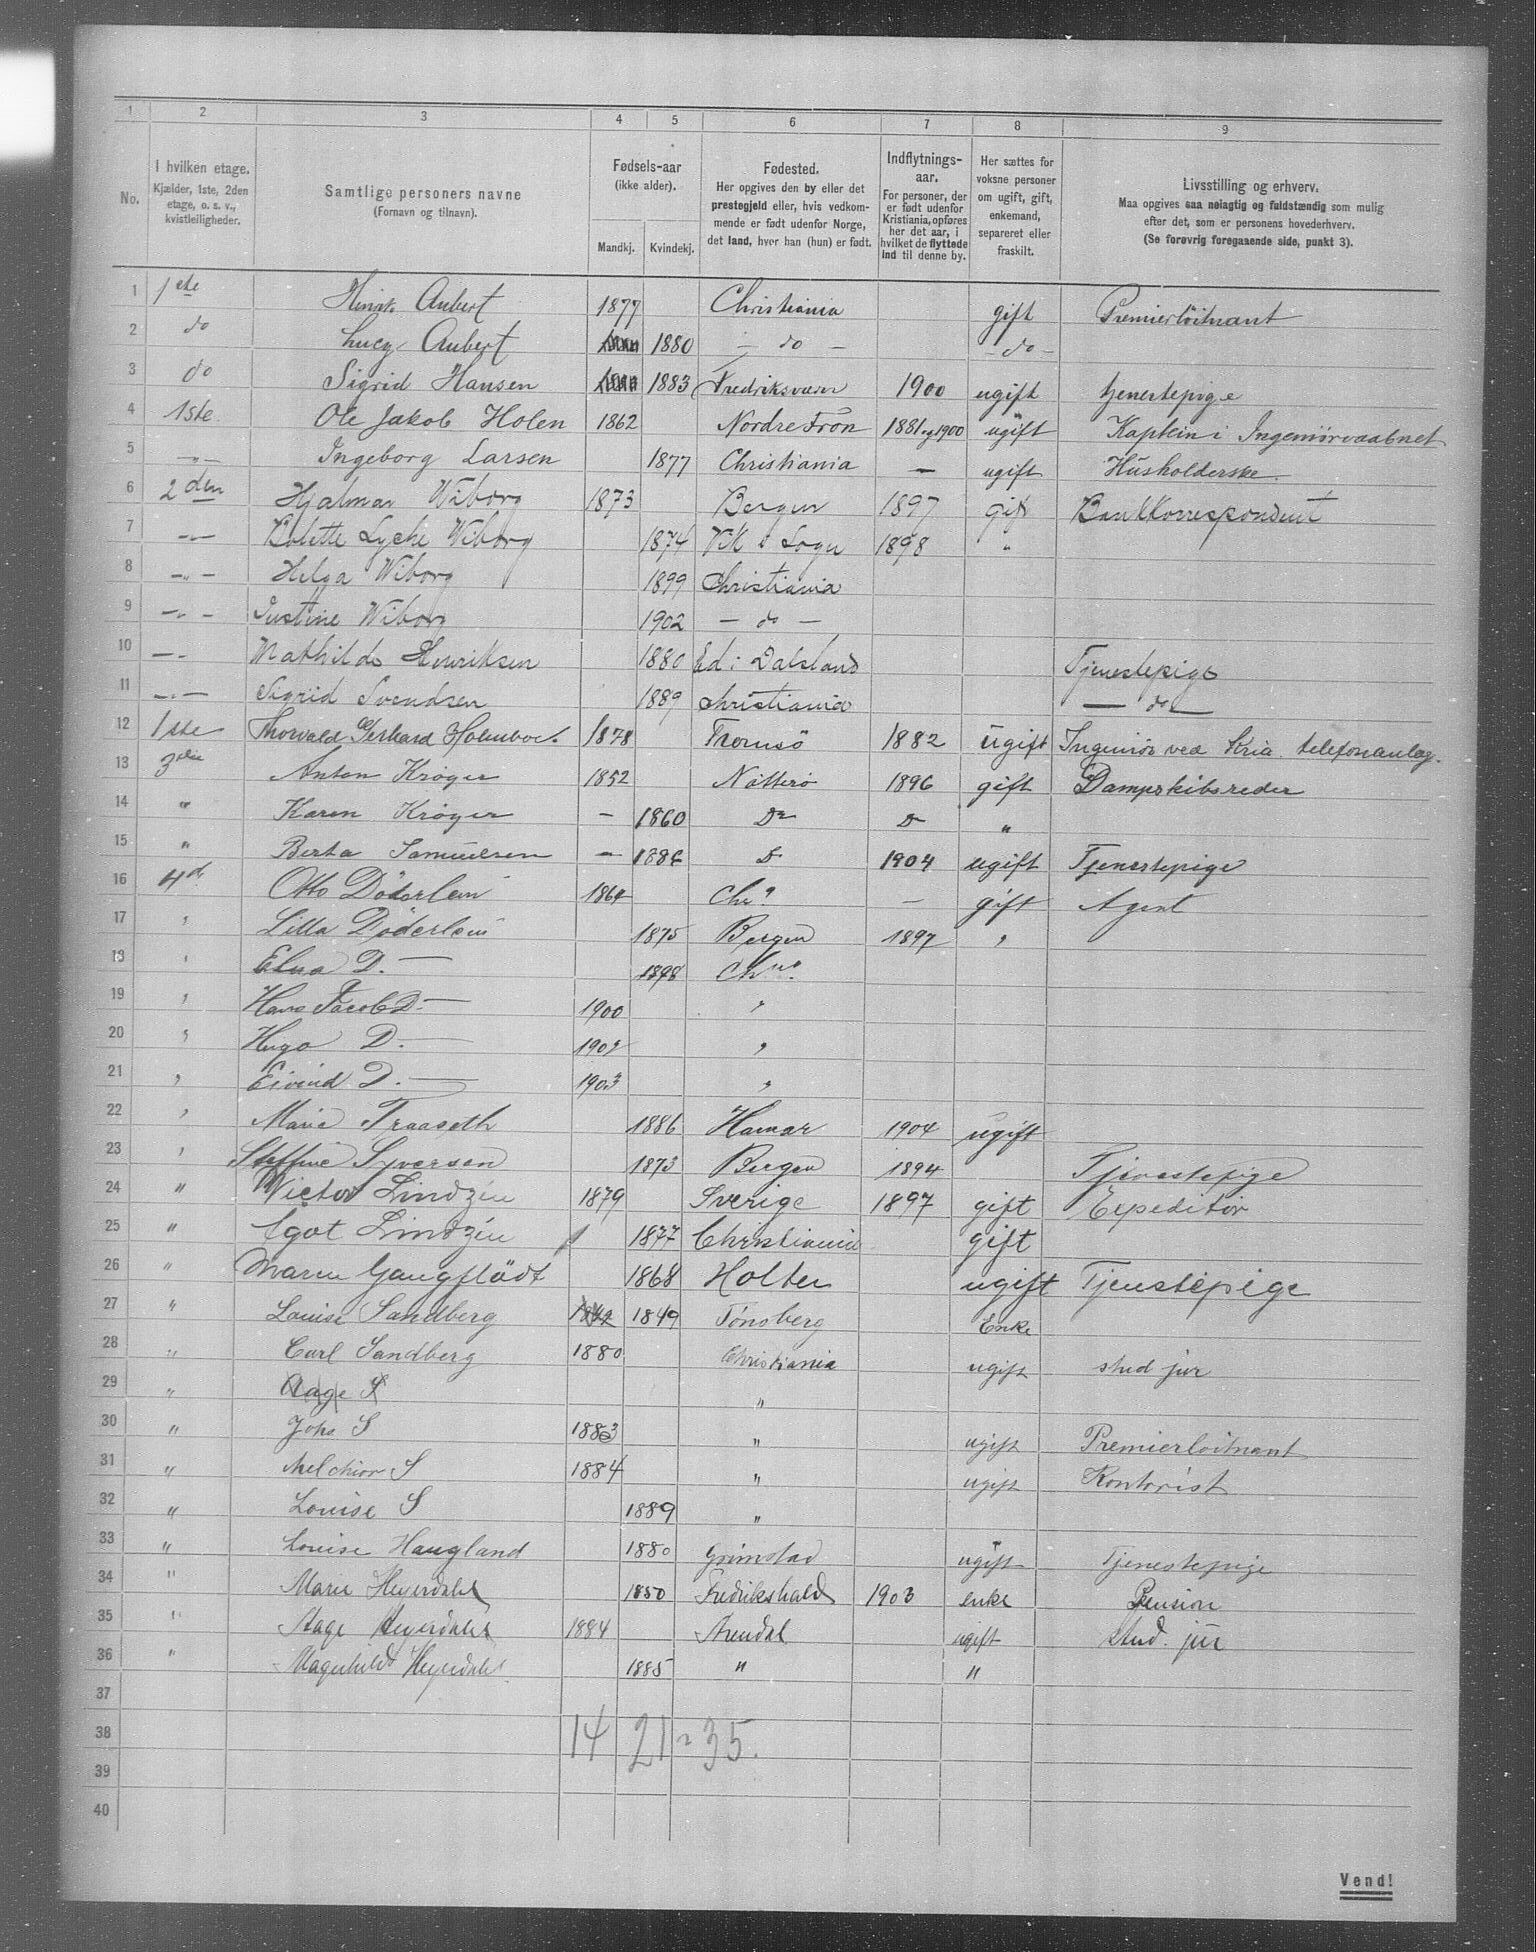 1 2 3 4 5 6 7 8 9
No. I hvilken etage. Kjælder, 1ste, 2den etage, o. s. v., kvistleiligheder. Samtlige personers navne (Fornavn og tilnavn). Fødsels-aar (ikke alder). Mandkj. Kvindekj. Fødested. Her opgives den by eller det prestegjeld eller, hvis vedkommende er født udenfor Norge, det land, hvor han (hun) er født. Indflytnings-aar. For personer, der er født udenfor Kristiania, opføres her det aar, i hvilket de flyttede ind til denne by. Her sættes for voksne personer om ugift, gift, enkemand, separeret eller fraskilt. Livsstilling og erhverv. Maa opgives saa nøiagtig og fuldstændig som mulig efter det, som er personens hovederhverv. (Se forøvrig foregaaende side, punkt 3).
1 1ste Henrik Aubert 1877 Christiania gift Premierløitnant
2 do Lucy Aubert 1880 — do — - do -
3 do Sigrid Hansen 1883 Fredriksværn 1900 ugift tjenestepige
4 1ste. Ole Jakob Holen 1862 Nordre Fron 1881 og 1900 ugift Kaptein i Ingeniørvaabnet
5 —"— Ingeborg Larsen 1877 Christiania — ugift Husholderske.
6 2den Hjalmar Wiborg 1873 Bergen 1897 gift Bankkorrespondent
7 —"— Bolette Lyche Wiborg 1874 Vik i Sogn 1898 "
8 —"— Helga Wiborg 1899 Christiania
9 —"— Justine Wiborg 1902 — do —
10 —"— Mathilde Henriksen 1880 Ed i Dalsland Tjenestepige
11 —"— Sigrid Svendsen 1889 Christiania — do —
12 1ste Thorvald Gerhard Holmboe. 1878 Tromsö 1882 ugift Ingeniør ved Kria. telefonanlæg.
13 3die Anton Krøger 1852 Nøtterø 1896 gift Dampskibsreder
14 " Karen Krøger — 1860 Do Do "
15 " Berta Samuelsen — 188 Do 1904 ugift Tjenestepige
16 4d. Otto Döderlein 1864 Chra — gift Agent
17 " Lilla Döderlein 1875 Bergen 1897 "
18 " Elna D. — 1898 Chra.
19 " Hans Jacob D — 1900 "
20 " Hugo D. — 1902 "
21 " Eivind D. — 1903 "
22 " Marie Traaseth 1886 Hamar 1904 ugift
23 " Steffine Syversen 1873 Bergen 1894 Tjenestepige
24 " Victor Lindzén 1879 Sverige 1897 gift Expeditör
25 " Lindzén 1877 Christiania gift
26 " Maren 1868 Holter ugift Tjenestepige
27 " Louise Sandberg 1849 1849 Tönsberg Enke
28 " Carl Sandberg 1880 Christiania ugift stud jur
29 " Aage S "
30 " Johs S 1883 " ugift Premierløitnant
31 " Melchior S 1884 " ugift Kontorist
32 " Louise S 1889 "
33 " Louise Haugland 1880 Grimstad ugift Tjenestepige
34 " Marie Heyerdahl 1850 Fredrikshald 1903 enke Pension
35 " Aage Heyerdahl 1884 Arendal ugift stud. jur
36 " Ragnhild Heyerdahl 1885 " "
37
38 14 21 = 35.
39
40
Vend!